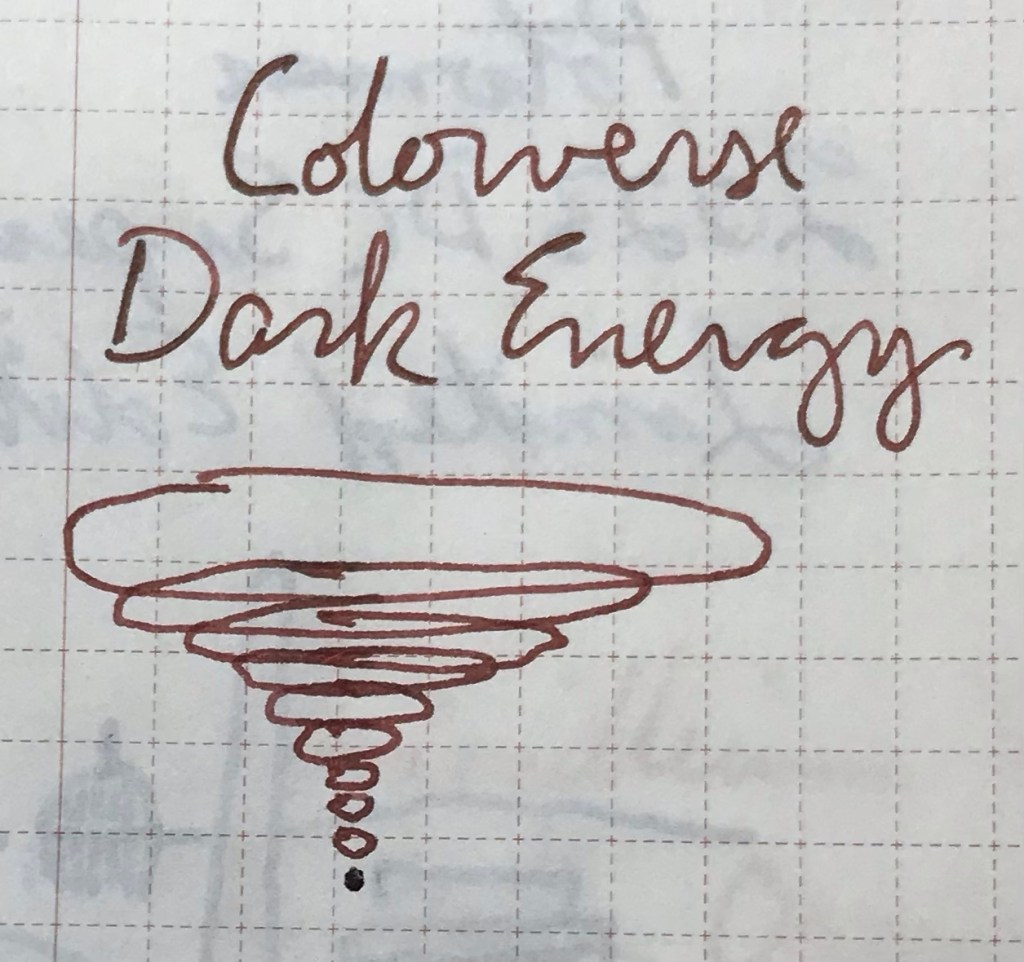 Colorverse
Dark Energy